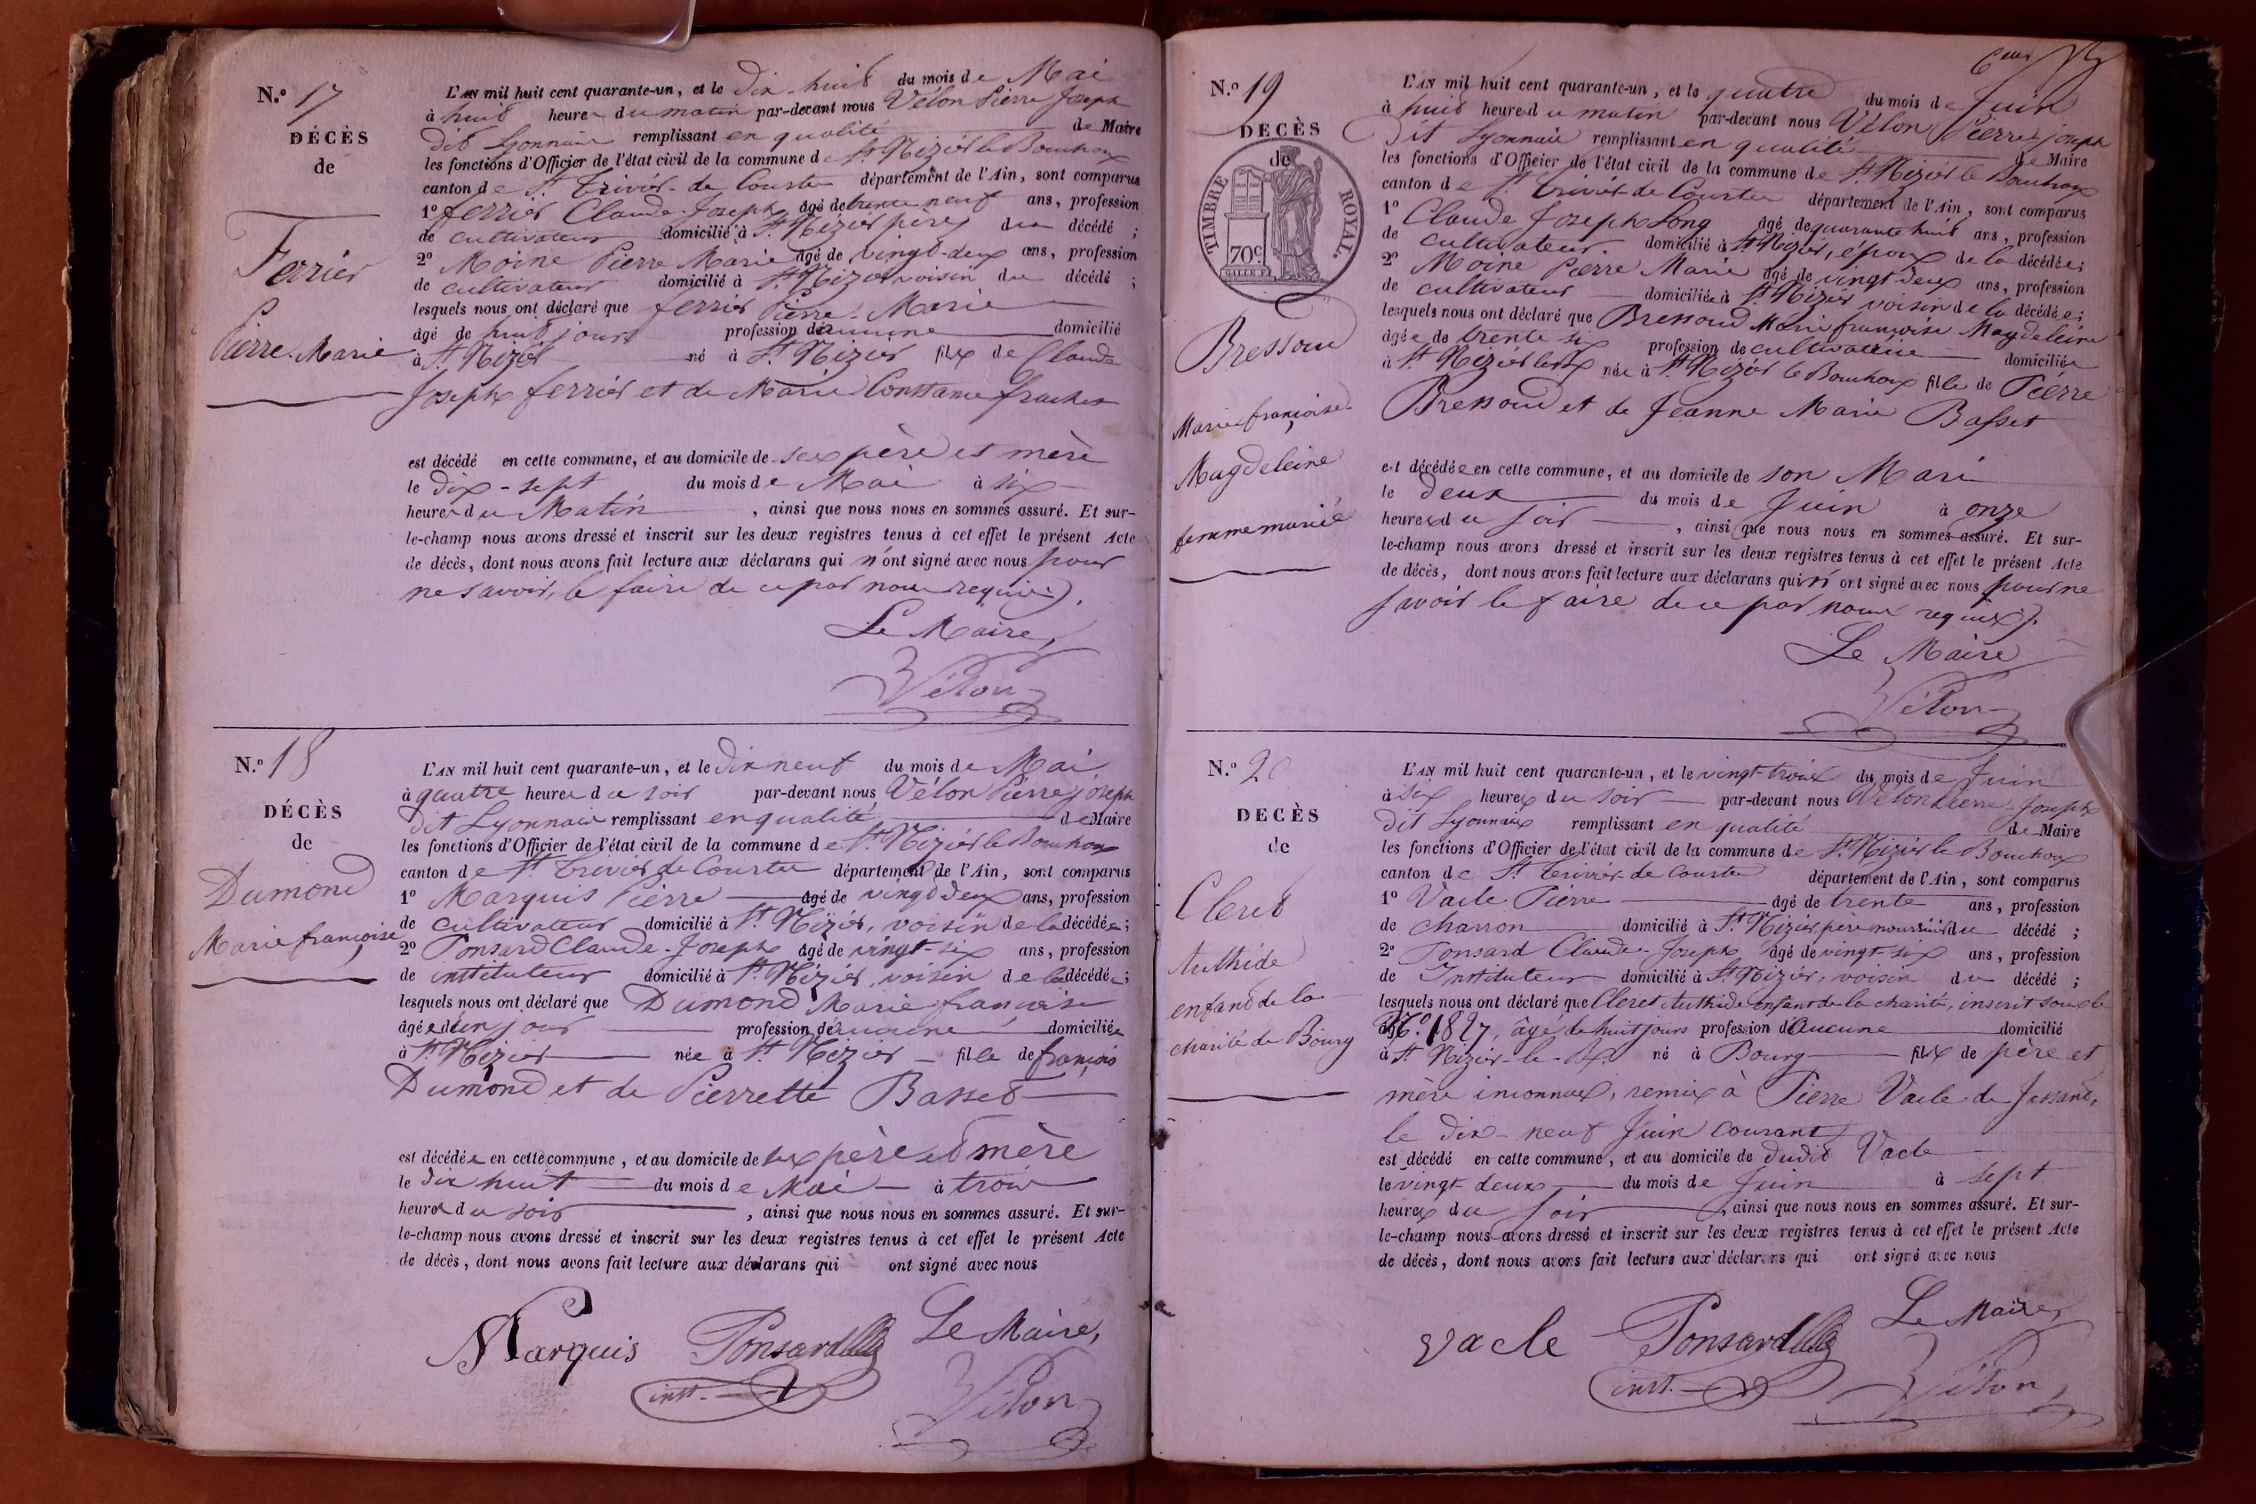 N.º 17
DÉCÈS
de
Ferrier
Pierre-Marie
L'AN mil huit cent quarante-un, et le dix-huit du mois de Mai
à huit heures du matin par-devant nous Vélon Pierre Joseph
dit Lyonnais remplissant en qualité de Maire
les fonctions d'Officier de l'état civil de la commune de St. Nizier le Bouchoux
canton de St. Trivier-de Courtes département de l'Ain, sont comparus
1º ferrier Claude-Joseph âgé de trente neuf ans, profession
de cultivateur domicilié à St. Nizier père du décédé ;
2º Moine Pierre Marie âgé de vingt-deux ans, profession
de cultivateur domicilié à St. Nizier voisin du décédé ;
lesquels nous ont déclaré que ferrier Pierre-Marie
âgé de huit jours profession d'aucune domicilié
à St. Nizier né à St. Nizier fils de Claude
Joseph ferrier et de Marie Constance
est décédé en cette commune, et au domicile de ses père et mère
le dix-sept du mois de Mai à six
heures du Matin, ainsi que nous nous en sommes assuré. Et sur-
le-champ nous avons dressé et inscrit sur les deux registres tenus à cet effet le présent Acte
de décès, dont nous avons fait lecture aux déclarans qui n'ont signé avec nous pour
ne savoir le faire de ce par nous requis.
Le Maire,
Vélon
N.º 18
DÉCÈS
de
Dumond
Marie françoise
L'AN mil huit cent quarante-un, et le dix neuf du mois de Mai
à quatre heures du soir par-devant nous Vélon Pierre joseph
dit Lyonnais remplissant en qualité de Maire
les fonctions d'Officier de l'état civil de la commune de St. Nizier le Bouchoux
canton de St. Trivier de Courtes département de l'Ain, sont comparus
1º Marquis Pierre âgé de vingt deux ans, profession
de cultivateur domicilié à St. Nizier, voisin de la décédée ;
2º Ponsard Claude-Joseph âgé de vingt-six ans, profession
de instituteur domicilié à St. Nizier, voisin de la décédée ;
lesquels nous ont déclaré que Dumond Marie françoise
âgée d'un jour profession d'aucune domiciliée
à St. Nizier née à St. Nizier fille de françois
Dumond et de Pierrette Basset
est décédée en cette commune, et au domicile de ses père et mère
le dix huit du mois de Mai à trois
heures du soir, ainsi que nous nous en sommes assuré. Et sur-
le-champ nous avons dressé et inscrit sur les deux registres tenus à cet effet le présent Acte
de décès, dont nous avons fait lecture aux déclarans qui ont signé avec nous
Marquis Ponsard Le Maire,
inst. Vélon
N.º 19
DÉCÈS
de
TIMBRE ROYAL
70c
Bressoud
Marie françoise
Magdeleine
femme mariée
L'AN mil huit cent quarante-un, et le quatre du mois de Juin
à huit heures du matin par-devant nous Vélon Pierre joseph
dit Lyonnais remplissant en qualité de Maire
les fonctions d'Officier de l'état civil de la commune de St. Nizier le Bouchoux
canton de St. Trivier de Courtes département de l'Ain, sont comparus
1º Claude Joseph Long âgé de quarante huit ans, profession
de cultivateur domicilié à St. Nizier, époux de la décédée ;
2º Moine Pierre Marie âgé de vingt deux ans, profession
de cultivateur domicilié à St. Nizier voisin de la décédée ;
lesquels nous ont déclaré que Bressoud Marie françoise Magdeleine
âgée de trente six profession de cultivatrice domiciliée
à St. Nizier née à St. Nizier le Bouchoux fille de Pierre
Bressoud et de Jeanne Marie Basset
est décédée en cette commune, et au domicile de son Mari
le deux du mois de Juin à onze
heures du soir, ainsi que nous nous en sommes assuré. Et sur-
le-champ nous avons dressé et inscrit sur les deux registres tenus à cet effet le présent Acte
de décès, dont nous avons fait lecture aux déclarans qui n'ont signé avec nous pour ne
savoir le faire de ce par nous requis.
Le Maire
Vélon
N.º 20
DÉCÈS
de
Cleret
Authide
enfant de la
charité de Bourg
L'AN mil huit cent quarante-un, et le vingt-trois du mois de Juin
à six heures du soir par-devant nous Vélon Pierre Joseph
dit Lyonnais remplissant en qualité de Maire
les fonctions d'Officier de l'état civil de la commune de St. Nizier le Bouchoux
canton de St. Trivier de Courtes département de l'Ain, sont comparus
1º Vacle Pierre âgé de trente ans, profession
de charron domicilié à St. Nizier père nourricier du décédé ;
2º Ponsard Claude-Joseph âgé de vingt-six ans, profession
de Instituteur domicilié à St. Nizier, voisin du décédé ;
lesquels nous ont déclaré que Cleret Authide enfant de la charité, inscrit sous le
Nº. 1827, âgé de huit jours profession d'aucune domicilié
à St. Nizier-le- né à Bourg fils de père et
mère inconnus, remis à Pierre Vacle de
le dix-neuf Juin courant
est décédé en cette commune, et au domicile de dudit Vacle
le vingt deux du mois de Juin à sept
heures du soir, ainsi que nous nous en sommes assuré. Et sur-
le-champ nous avons dressé et inscrit sur les deux registres tenus à cet effet le présent Acte
de décès, dont nous avons fait lecture aux déclarans qui ont signé avec nous
Vacle Ponsard Le Maire,
inst. Vélon